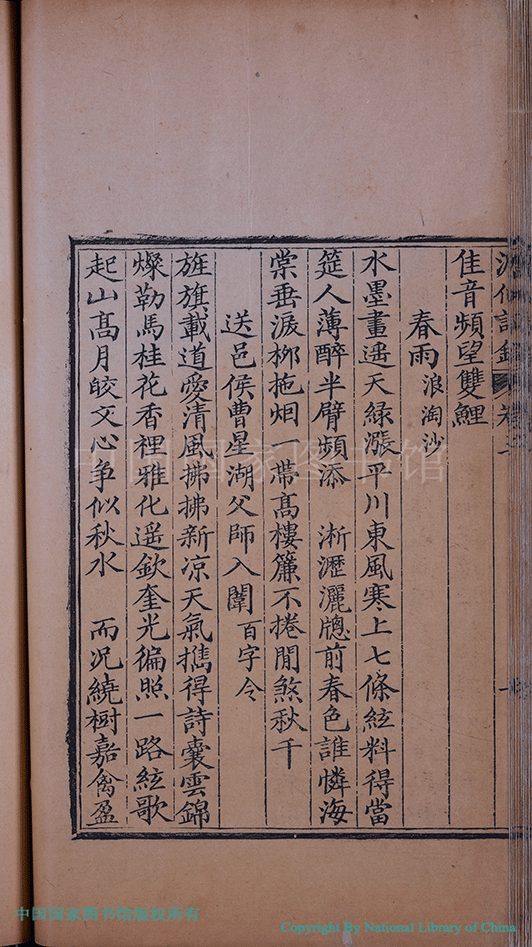 佳音頻望雙鯉
春雨 浪淘沙
水墨畫遥天綠漲平川東風寒上七條絃料得當
筵人薄醉半臂頻添 淅瀝灑牕前春色誰憐海
棠垂淚柳拖烟一帶高樓簾不捲閒煞秋千
送邑侯曹星湖父師入闈 百字令
旌旗載道愛清風拂拂新凉天氣擕得詩囊雲錦
燦勒馬桂花香裡雅化遥欽奎光徧照一路絃歌
起山高月皎文心爭似秋水 而况繞樹嘉禽盈
中国国家图书馆
中国国家图书馆版权所有
Copyright By National Library of China